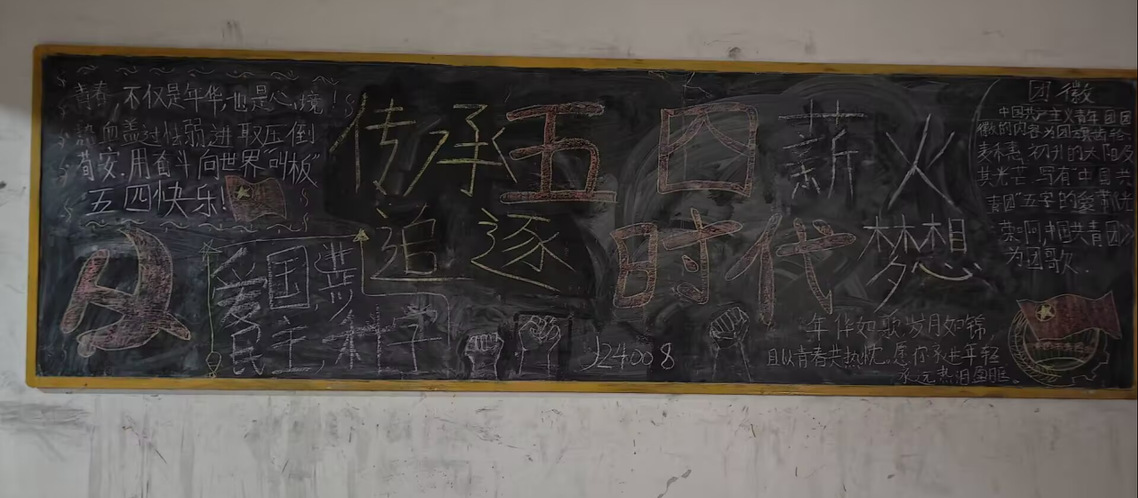 青春,不仅是年华,也是心境!
热血盖过怯弱,进取压倒
苟安.用奋斗向世界"叫板"
五四快乐!
传承五四薪火
追逐时代梦想
爱国
民主,科学
J24008
年华如歌岁月如锦,
且以青春共热忱.愿你永远年轻
永远热泪盈眶。
团徽
中国共产主义青年团团
徽的内容为团旗齿轮、
麦穗、初升的太阳及
其光芒,写有"中国共
青团"五字的绶带,《光
荣啊,中国共青团》
为团歌.